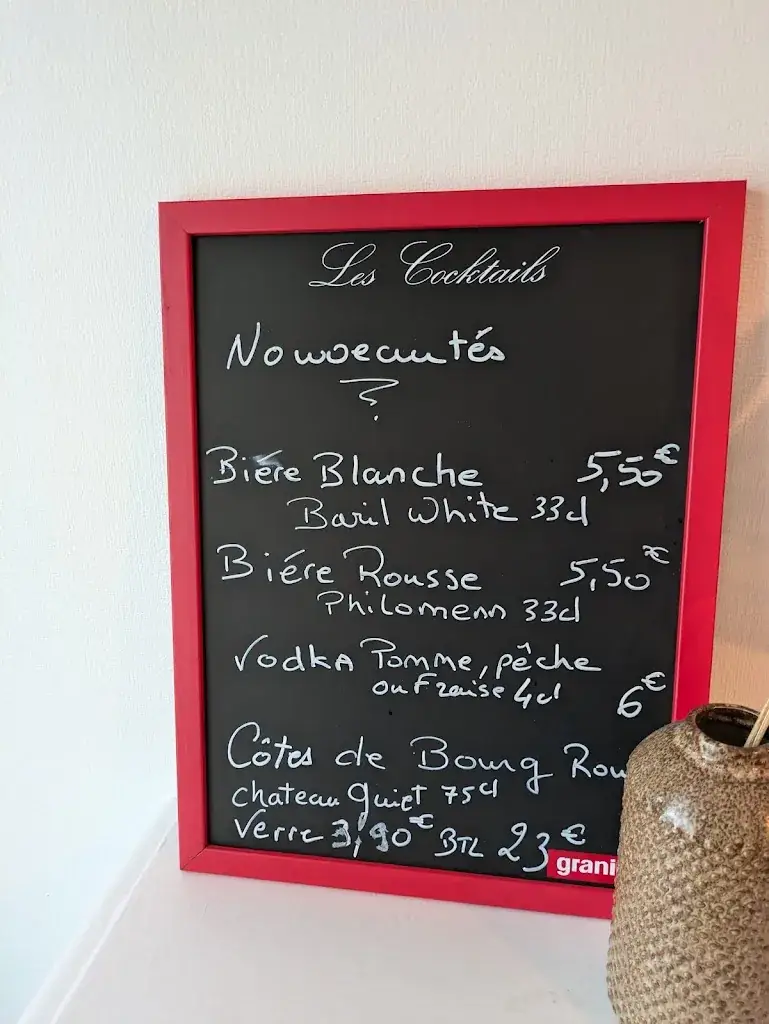 Les Cocktails
Nouveautés
Bière Blanche 5,50€
Baril White 33cl
Biére Rousse 5,50€
Philomenn 33cl
Vodka Pomme, pêche
ou Fraise 4cl 6€
Côtes de Bourg Rou
chateau Guiet 75cl
Verre 3,90€ BTL 23€
grani